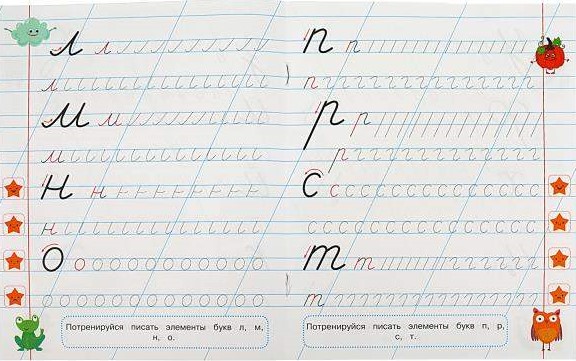 л л
л
м м
м
н н
н
о о
Потренируйся писать элементы букв л, м,
н, о.
п п
п
р р
р
с с
т т
т
Потренируйся писать элементы букв п, р,
с, т.